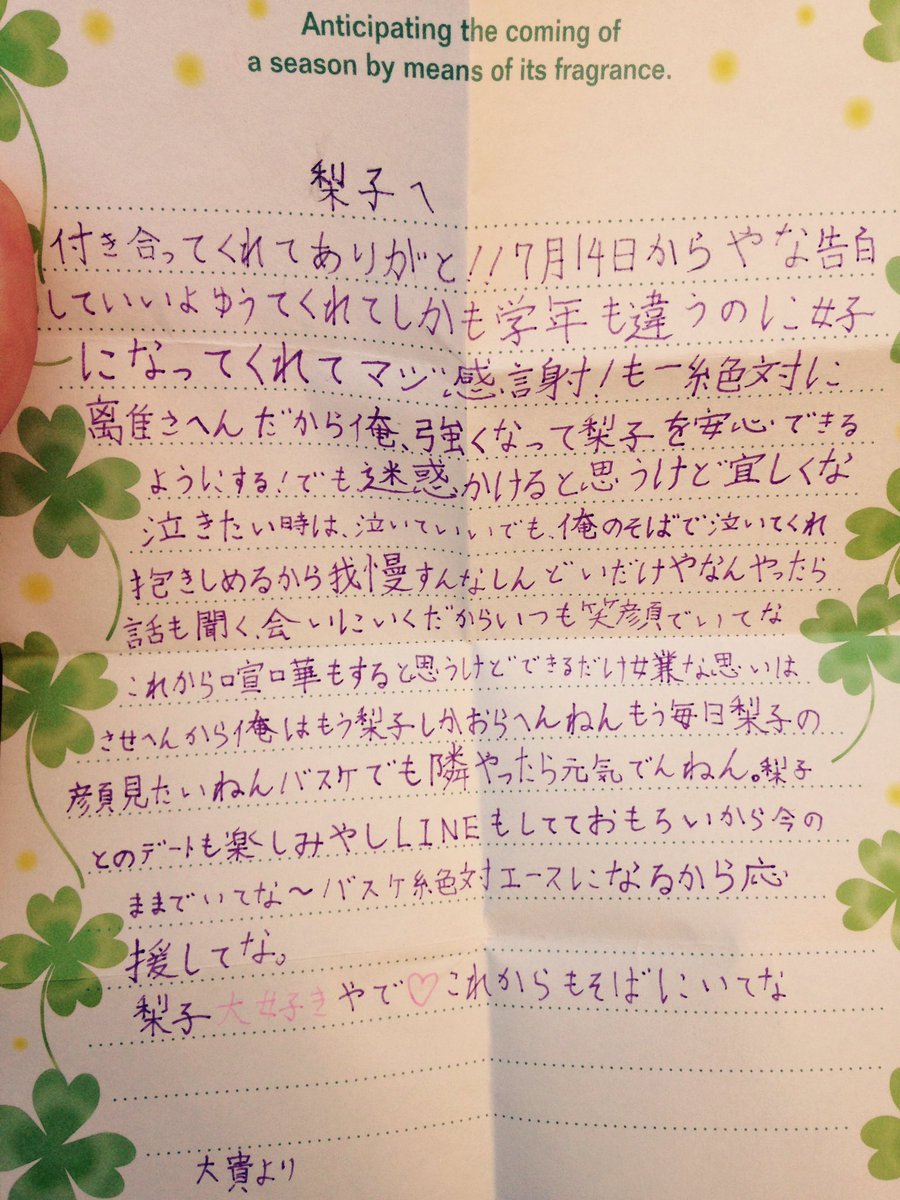 Anticipating the coming of
a season by means of its fragrance.
梨子へ
付き合ってくれてありがと!!7月14日からやな告白
していいよゆうてくれてしかも学年も違うのに女子
になってくれてマジ感謝!も一絶対に
離さへんだから俺、強くなって梨子を安心できる
ようにする!でも迷惑かけると思うけど宜しくな
泣きたい時は、泣いていいでも、俺のそばで泣いてくれ
抱きしめるから我慢すんなしんどいだけやなんやったら
話も聞く、会いにいくだからいつも笑顔でいてな
これから喧嘩もすると思うけどできるだけ嫌な思いは
させへんから俺はもう梨子しかおらへんねんもう毎日梨子の
顔見たいねんバスケでも隣やったら元気でんねん。梨子
とのデートも楽しみやしLINEもしてておもろいから今の
ままでいてな〜バスケ絶対エースになるから応
援してな。
梨子大好きやで♡これからもそばにいてな
大貴より